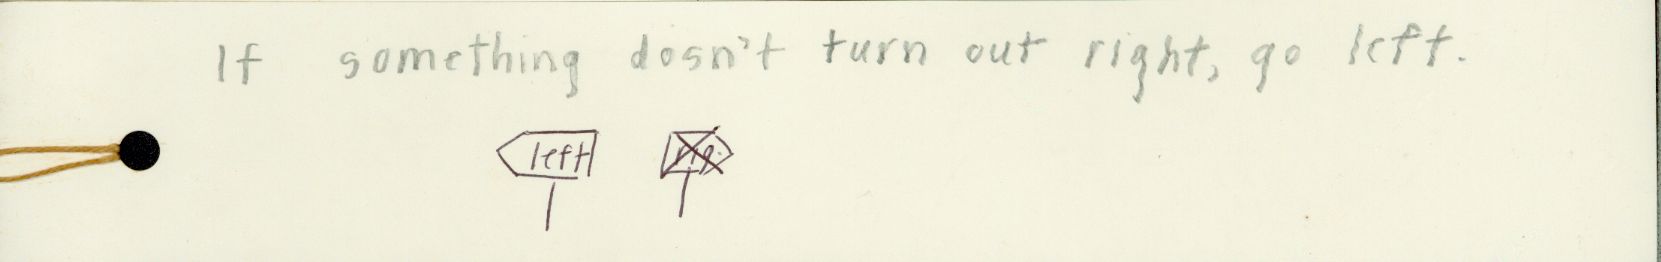 If something dosn't turn out right, go left.
left